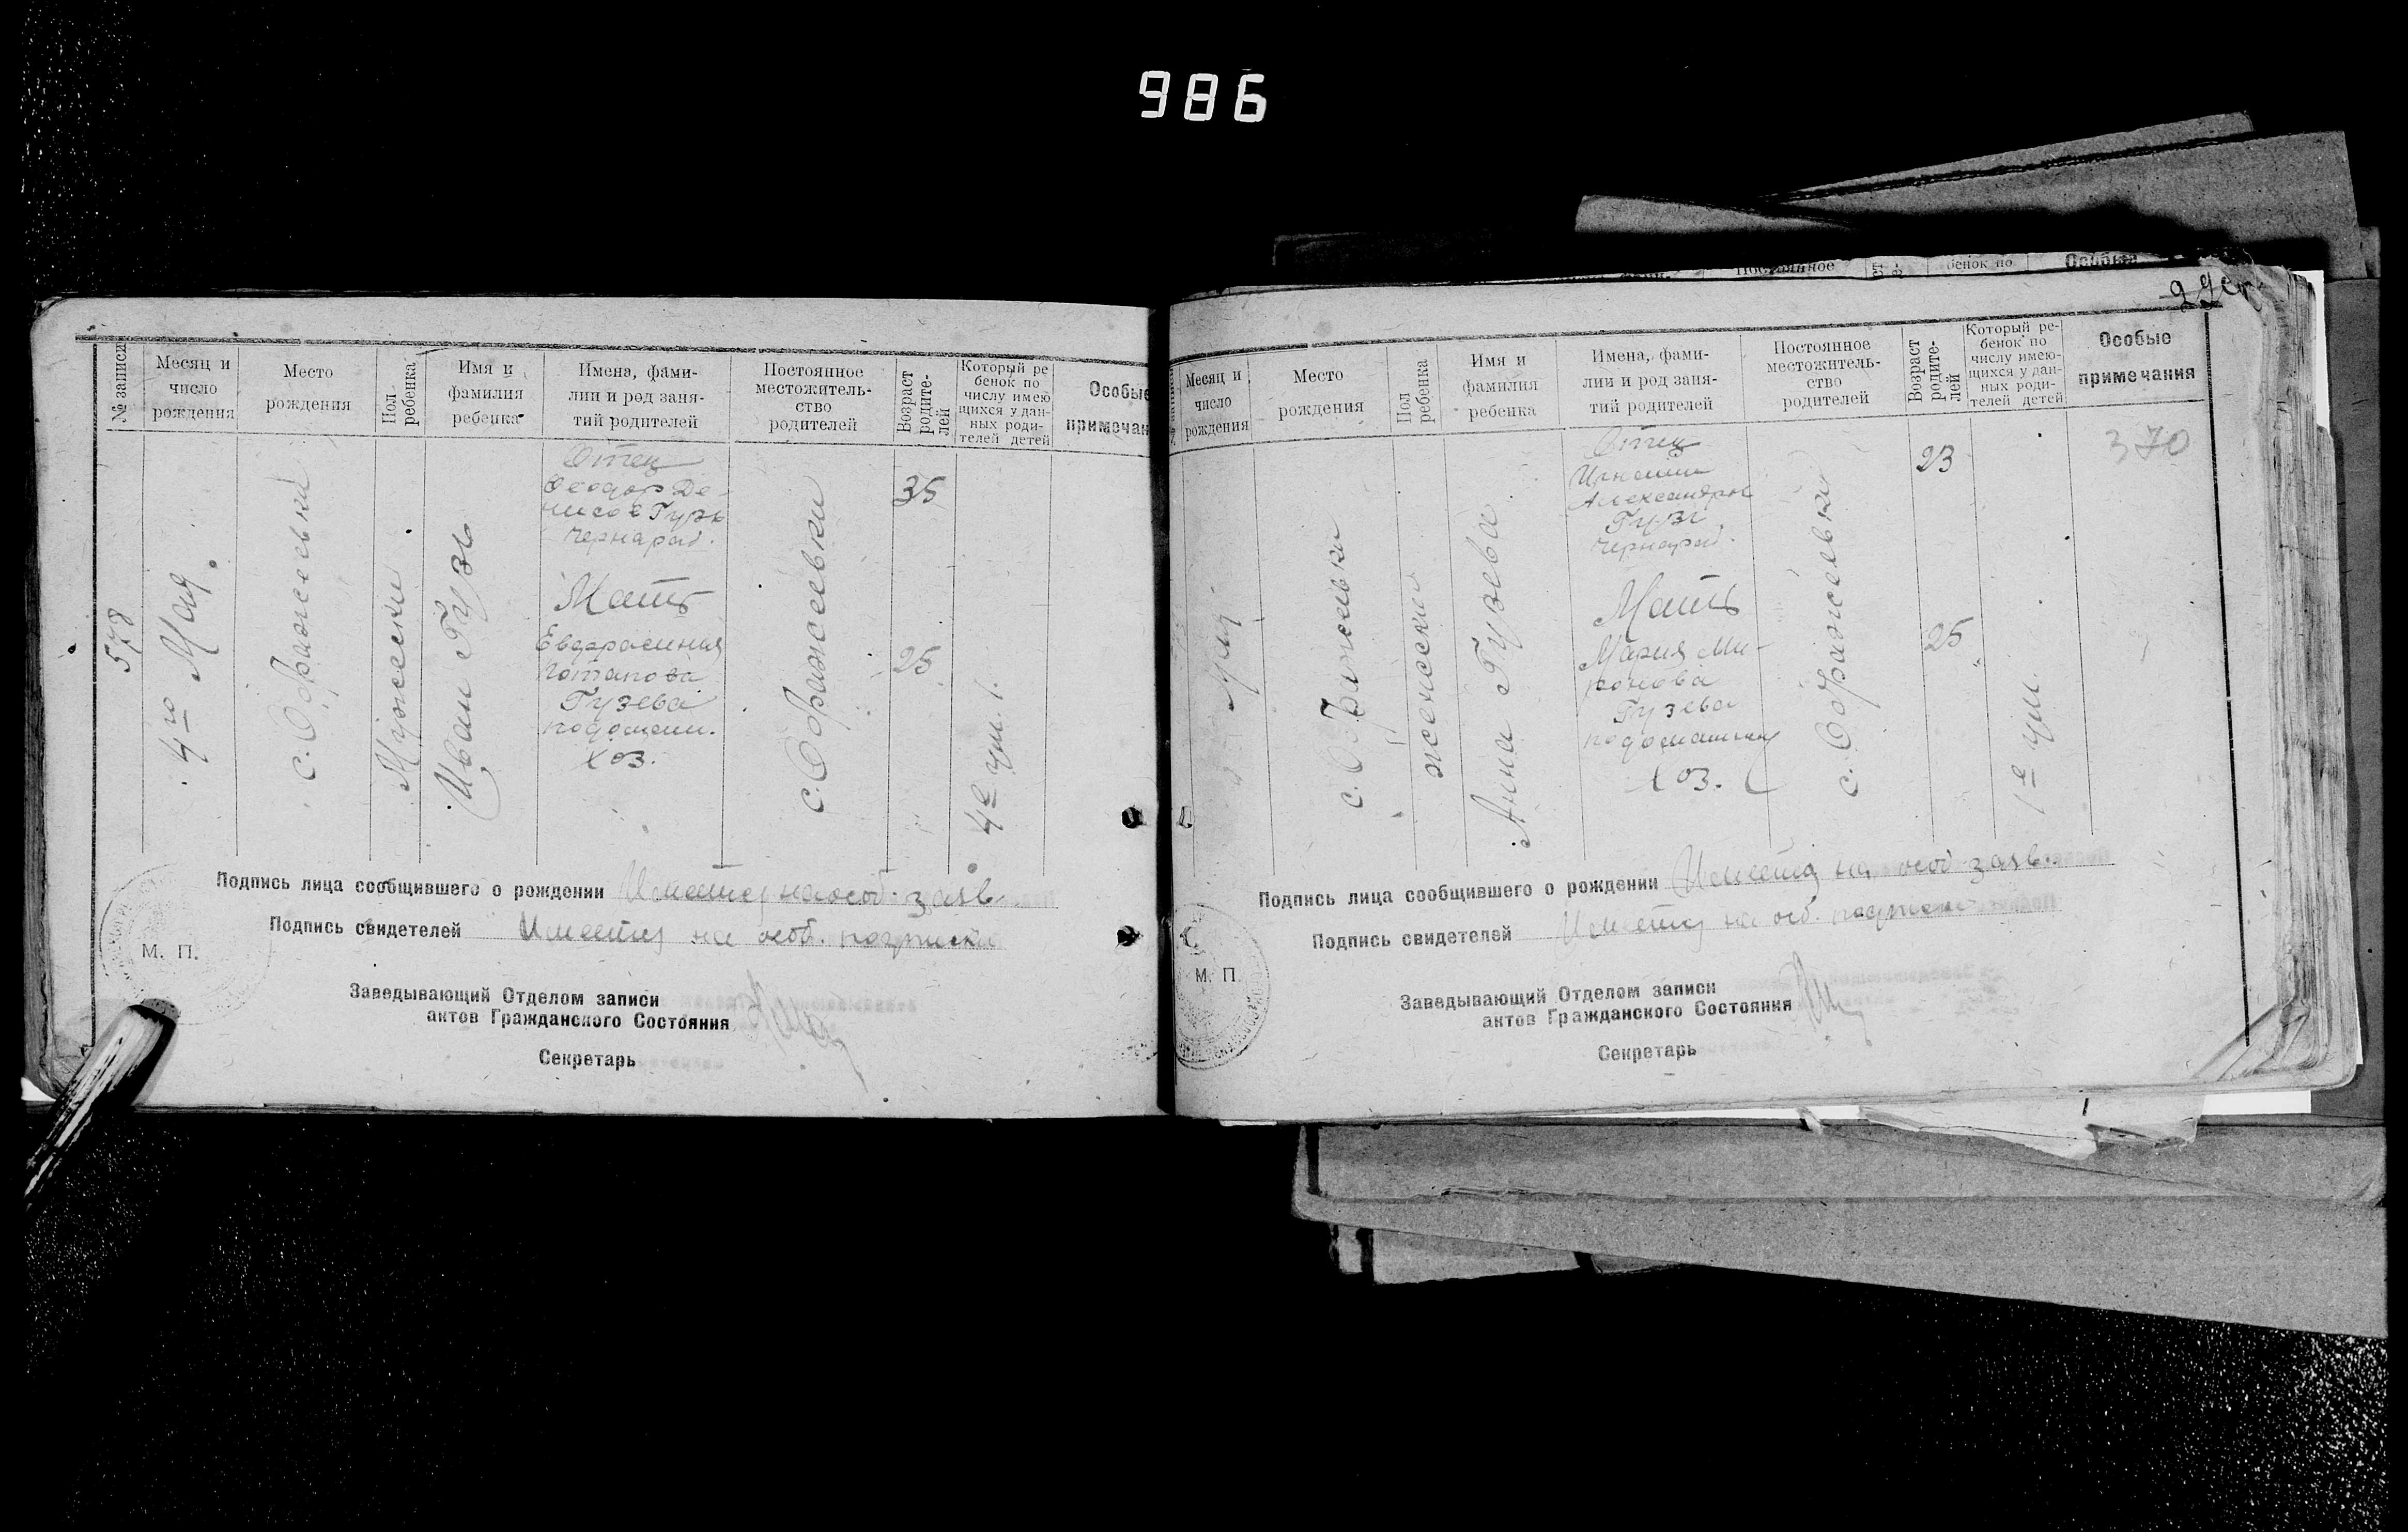 986
№ записи
Месяц и число рождения
Место рождения
Пол ребенка
Имя и фамилия ребенка
Имена, фами-
лии и род заня-
тий родителей
Постоянное
местожитель-
ство
родителей
Возраст
родите-
лей
Который ре
бенок по
числу имею
щихся у дан-
ных роди-
телей детей
Особые
примечан
578
4го Мая
с. Ображеевки
Мужески
Иван Гузь
Отец
Феодор Де-
нисов Гузь
чернораб.
Мать
Евфросиния
Потапова
Гузева
по домашн.
хоз.
с. Ображеевки
35
25
4е
Подпись лица сообщившего о рождении Имеется на особ. заяв.
Подпись свидетелей Имеется на особ. подписки
М. П.
Заведывающий Отделом записи
актов Гражданского Состояния
Секретарь
Месяц и
число
рождения
Место
рождения
Пол
ребенка
Имя и
фамилия
ребенка
Имена, фами-
лии и род заня-
тий родителей
Постоянное
местожитель-
ство
родителей
Возраст
родите-
лей
Который ре-
бенок по
числу имею-
щихся у дан-
ных роди-
телей детей
Особые
примечания
370
с. Ображеевки
женески
Анна Гузева
Отец
Александров
Гузь
чернораб.
Мать
Мария Ми-
ронова
Гузева
по домашнему
хоз.
с. Ображеевки
23
25
1е
Подпись лица сообщившего о рождении Имеется на особ. заяв.
Подпись свидетелей Имеется на особ. подписки
М. П.
Заведывающий Отделом записи
актов Гражданского Состояния
Секретарь